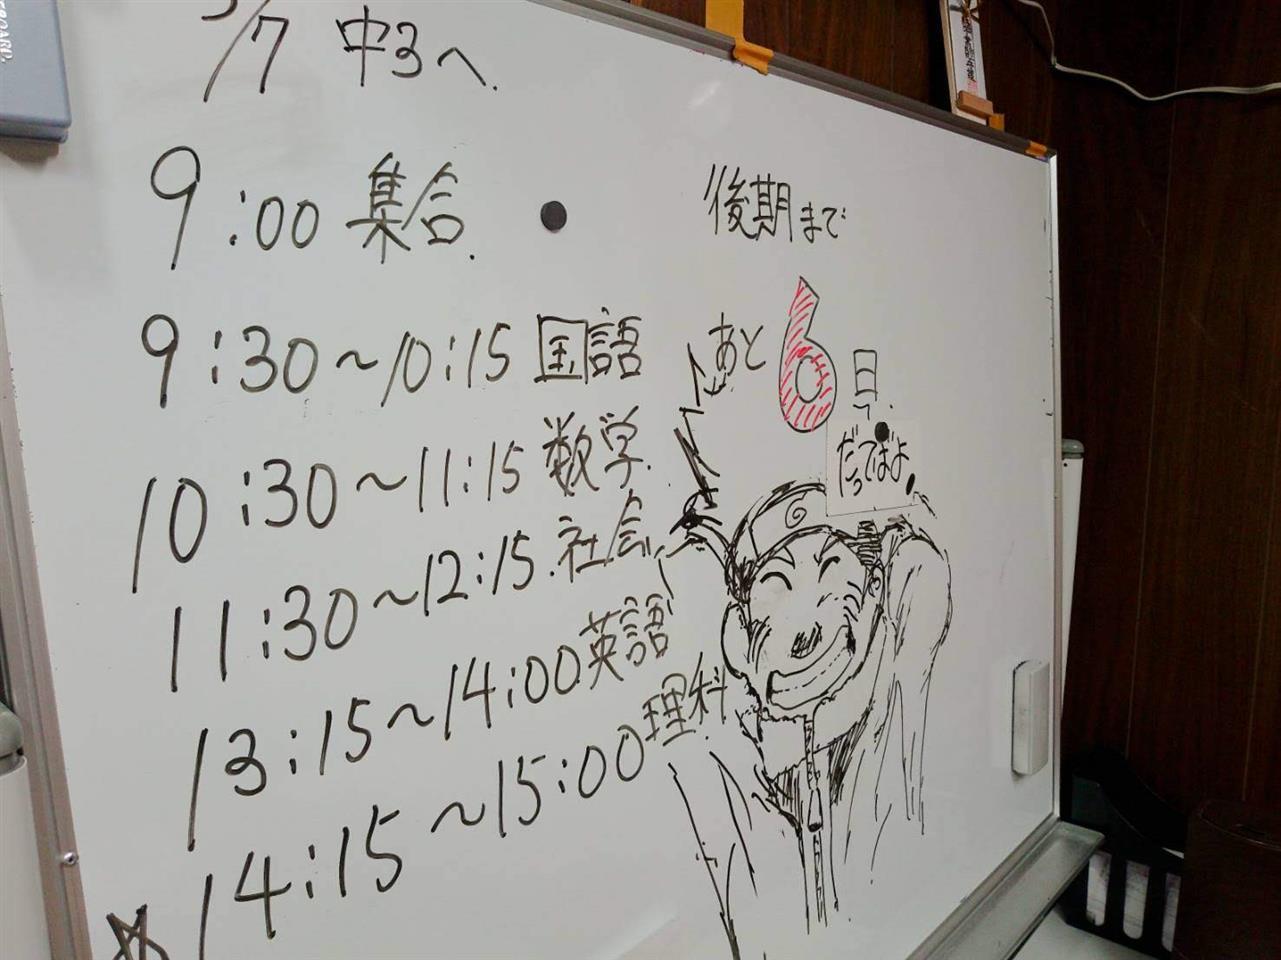 3/7 中3へ.
9:00 集合.
9:30~10:15 国語
10:30~11:15 数学.
11:30~12:15.社会
13:15~14:00英語
14:15~15:00理科.
後期まで
あと6日.
だってばよ!